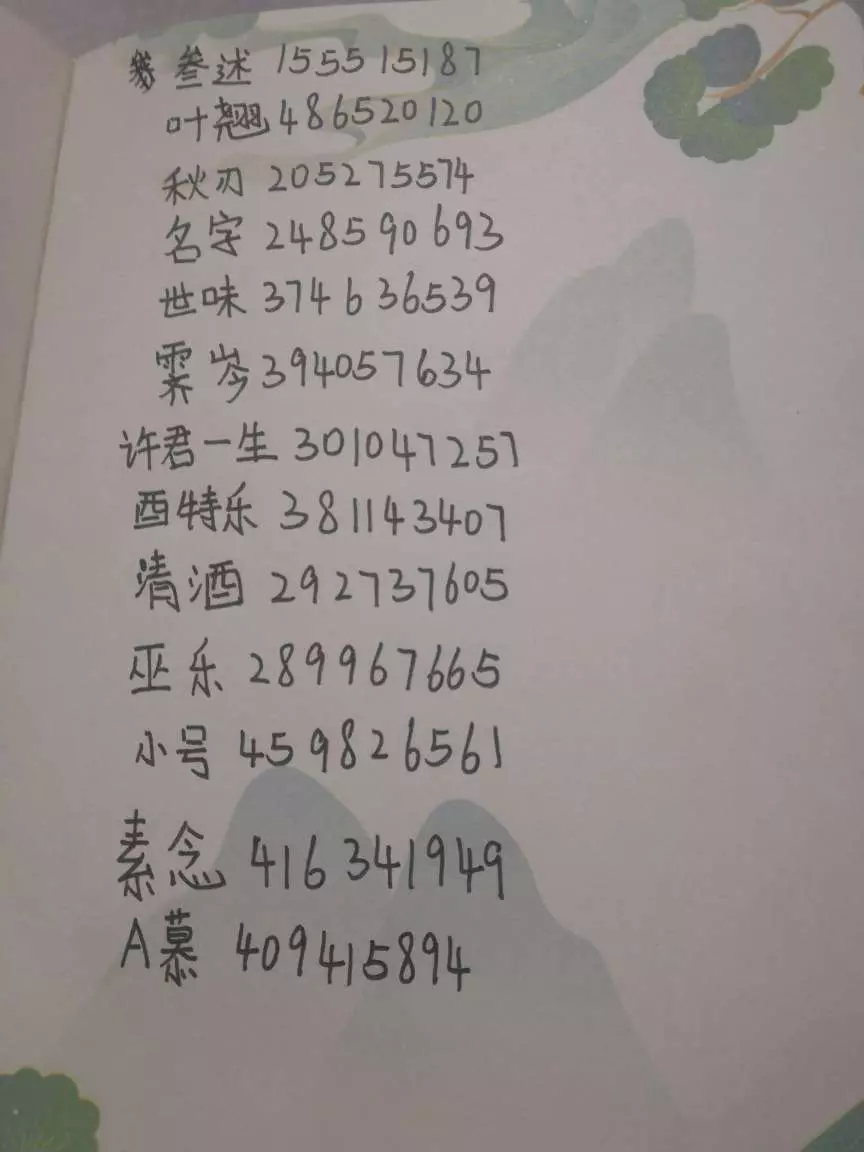 叁述 155515187
叶翘 486520120
秋刃 205275574
名字 248590693
世味 374636539
霁岑 394057634
许君一生 301047257
酉特乐 381143407
清酒 292737605
巫乐 289967665
小号 459826561
素念 416341949
A慕 409415894